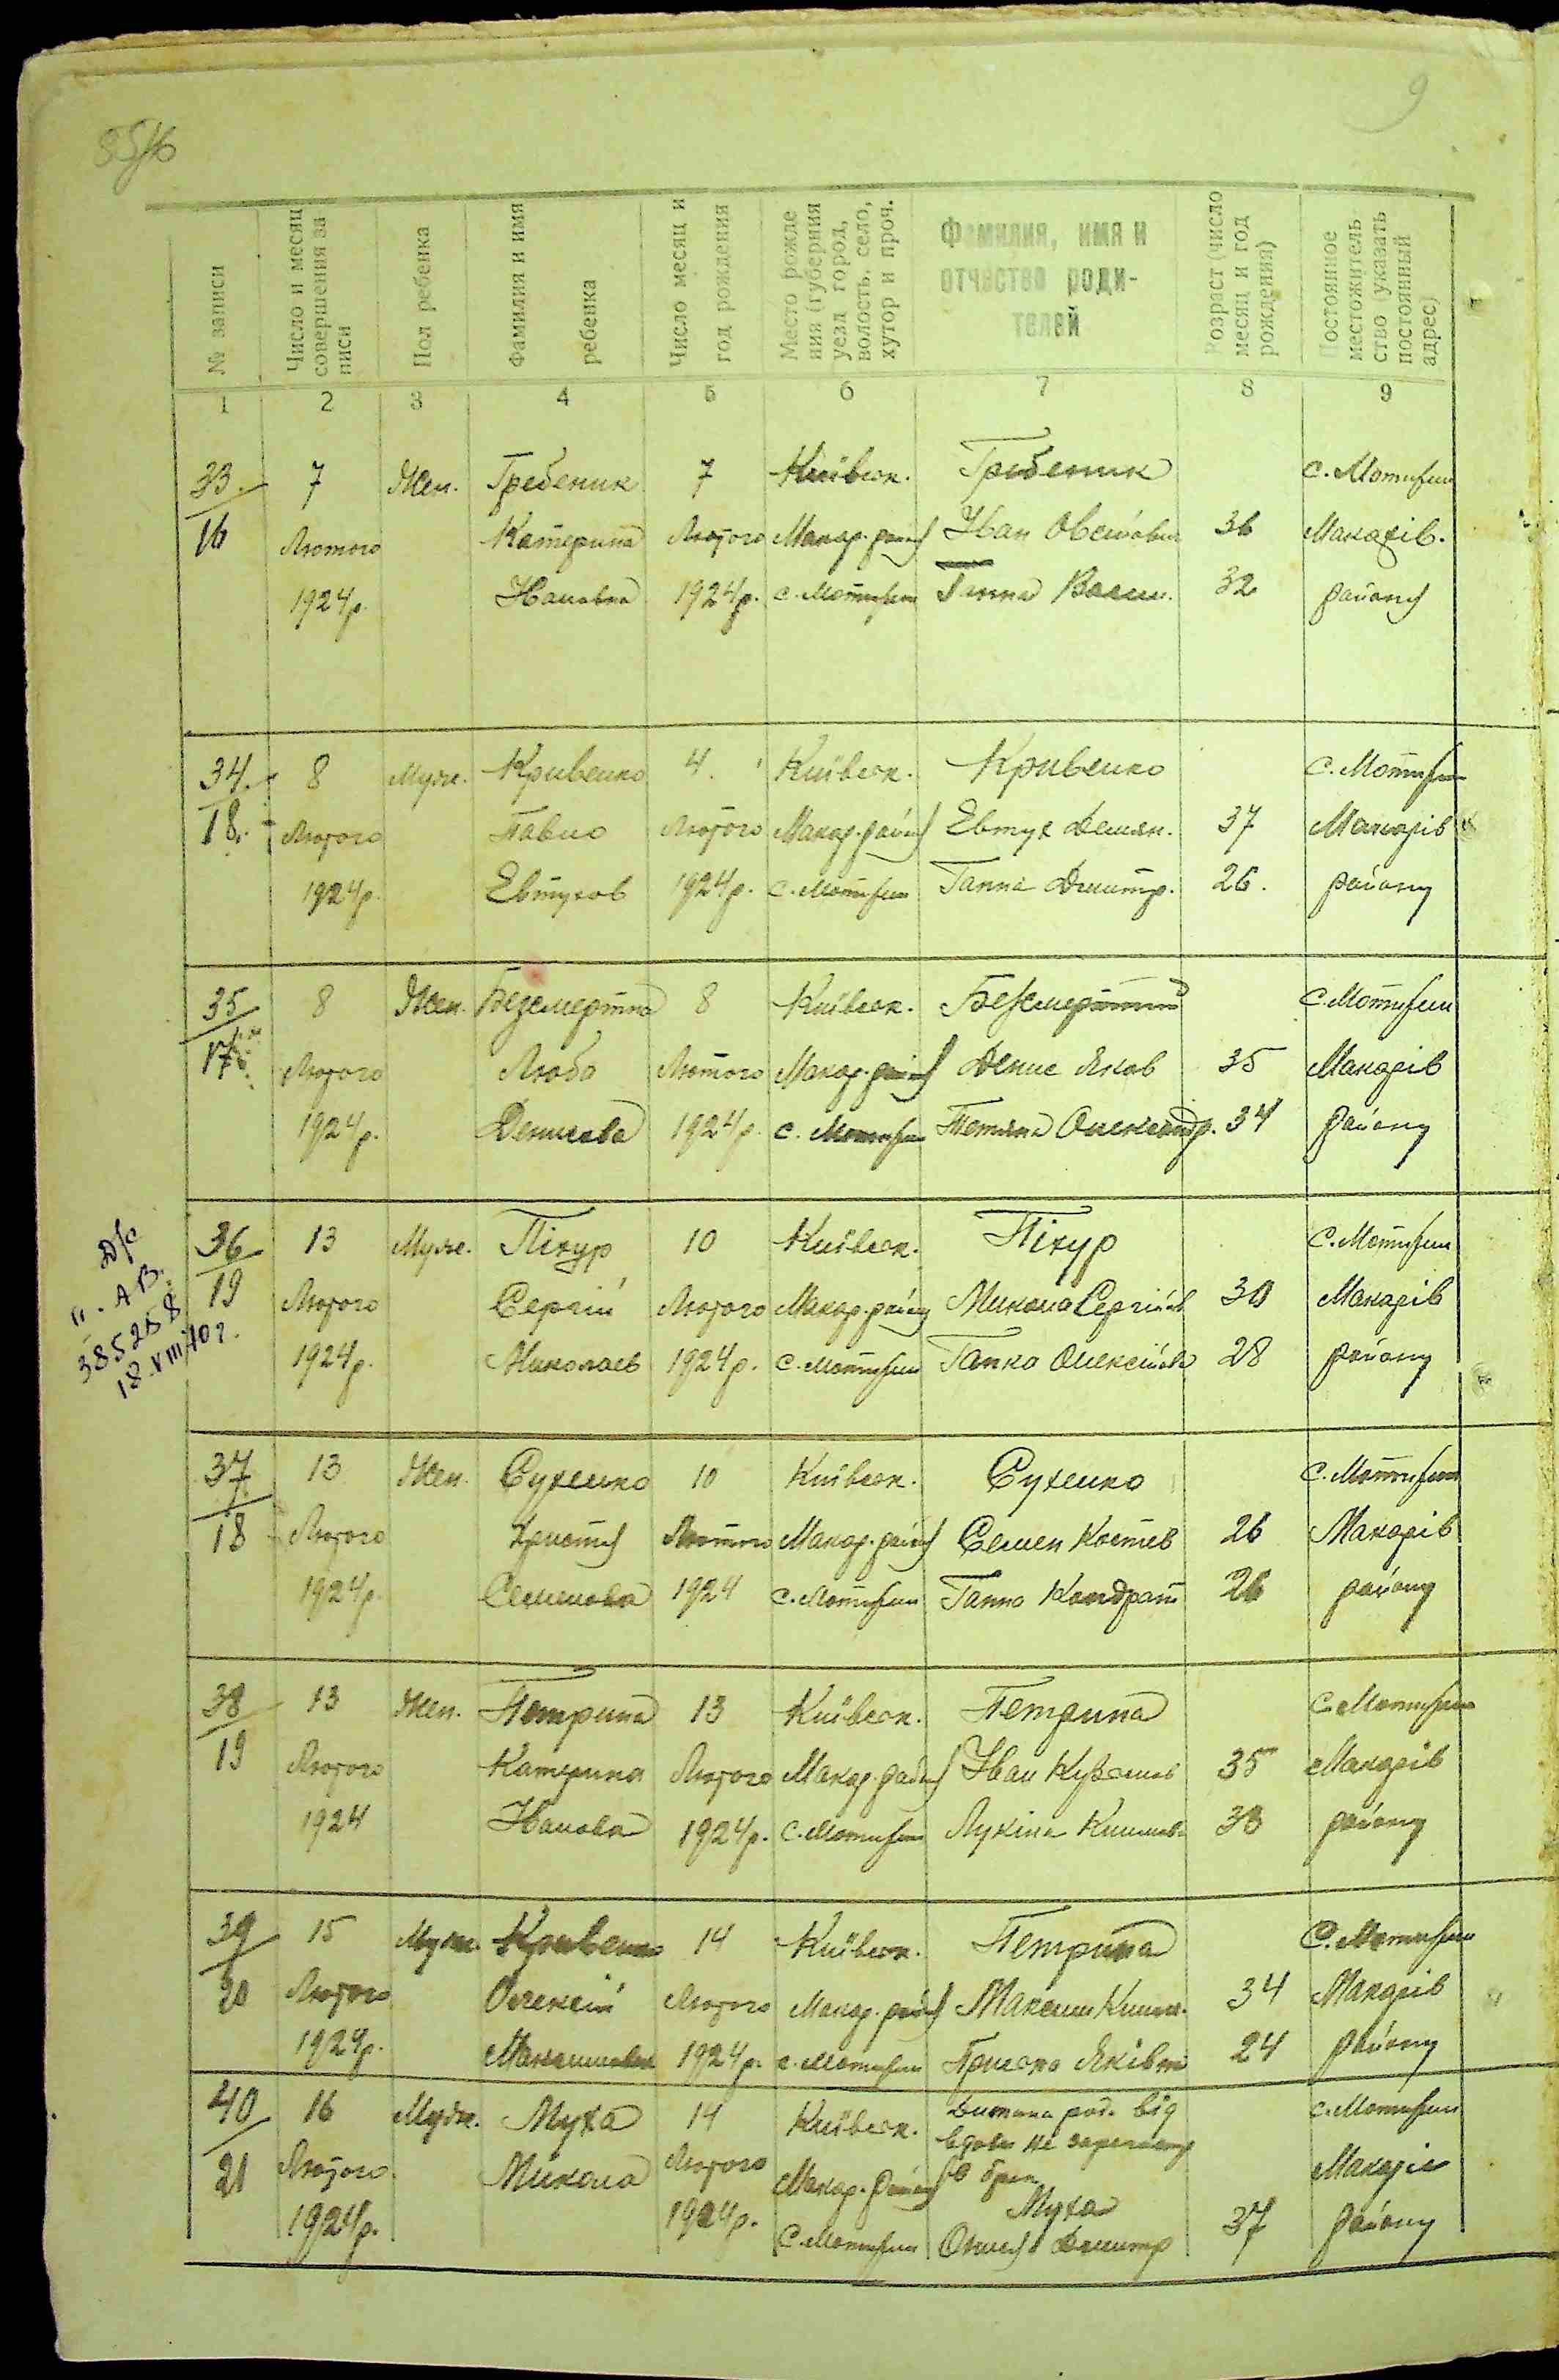 9
№ записи
Число и месяц совершения за писи
Пол ребенка
Фамилия и имя ребенка
Число месяц и год рождения
Место рожде ния (губерния уезд город, волость, село, хутор и проч.
Фамилия, имя и отчество роди- телей
Возраст (число месяц и год рождения)
Постоянное местожитель ство (указать постоянный адрес)
1 2 3 4 5 6 7 8 9
33. 7 Жен. Гребеник 7 Київськ. Гребеник с. Мотижин
16 Лютого Катерина Лютого Макар. району Іван 36 Макарів.
1924р. Іванівна 1924р. с. Мотижин Ганна Васил. 32 району
34. 8 Муж. Кривенко 4. Київськ. Кривенко с. Мотижин
18. Лютого Павло Лютого Макар. району Евтух Демян. 37 Макарів
1924р. Евтухов 1924р. с. Мотижин Ганна Дмитр. 26. району
35 8 Жен. Безсмертна 8 Київськ. Безсмертний с. Мотижин
17 Лютого Люба Лютого Макар. району Денис Яков 35 Макарів
1924р. Денисова 1924р. с. Мотижин Тетяна Олександр. 34 району
36 13 Муж. Піхур 10 Київськ. Піхур с. Мотижин
19 Лютого Сергій Лютого Макар. району Микола Сергійов 30 Макарів
1924р. Николаев 1924р. с. Мотижин Ганна Олексіівна 28 району
385258
18-VIII/40г.
37 13 Жен. Сухенко 10 Київськ. Сухенко с. Мотижин
18 Лютого Христя Лютого Макар. району Семен Костев 26 Макарів
1924р. Семенова 1924 с. Мотижин Ганна Кондрат 26 району
38 13 Жен. Петрина 13 Київськ. Петрина с. Мотижин
19 Лютого Катерина Лютого Макар. району Іван 35 Макарів
1924 Іванова 1924р. с. Мотижин Лукіна 33 району
39 15 Муж. Кривенко 14 Київськ. Петрина с. Мотижин
20 Лютого Олексій Лютого Макар. району Максим 34 Макарів
1924р. 1924р. с. Мотижин Яківна 24 району
40 16 Муж. Муха 14 Київськ. Дитина род. від с. Мотижин
вдови не
21 Лютого Микола Лютого Макар. району брак Макарів
1924р. 1924р. Муха району
с. Мотижин Дмитр 37